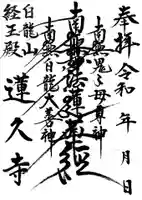 奉拝
令和 年 月 日
南無鬼子母尊神
南無妙法蓮華経
南無白龍大善神
白龍山
経王殿
蓮久寺